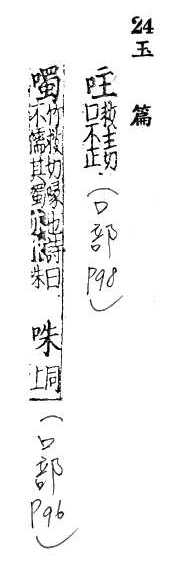 24 玉 篇
𠰍 救主切 口不正 (口部 P98)
噣 竹救切喙也詩曰 不濡其噣 朱 咮 同上 (口部 P96)